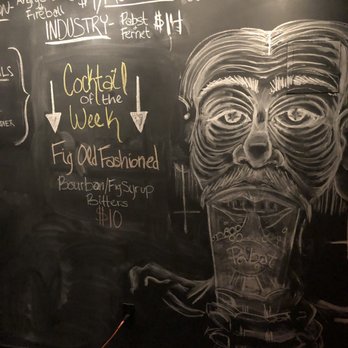 Fireball
INDUSTRY- Pabst $14
Fernet
Cocktail
of the
Week
Fig Old Fashioned
Bourbon/Fig Syrup
Bitters
$10
Pabst